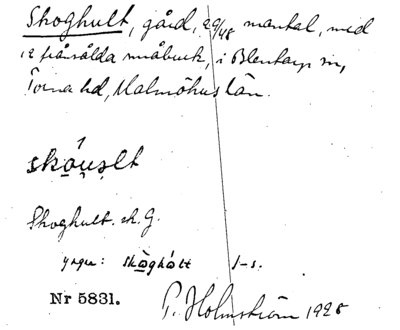 Skoghult, gård, 29/48 mantal, med
12 frånsålda småbruk, i Blentarps sn,
Torna hd, Malmöhus län.
Skoghult. sk. G.
yngre: skòghúlt
Nr 5831.
P. Holmström 1928